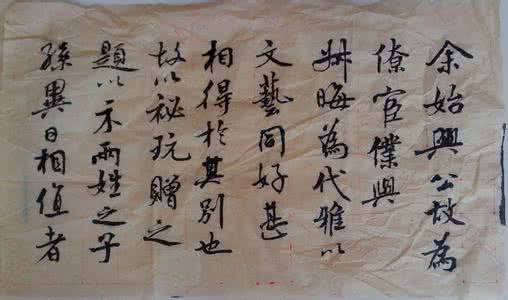 余始興公故為
僚宦僕與
叔晦為代雅以
文藝同好甚
相得於其別也
故以祕玩贈之
題以示兩姓之子
孫異日相值者